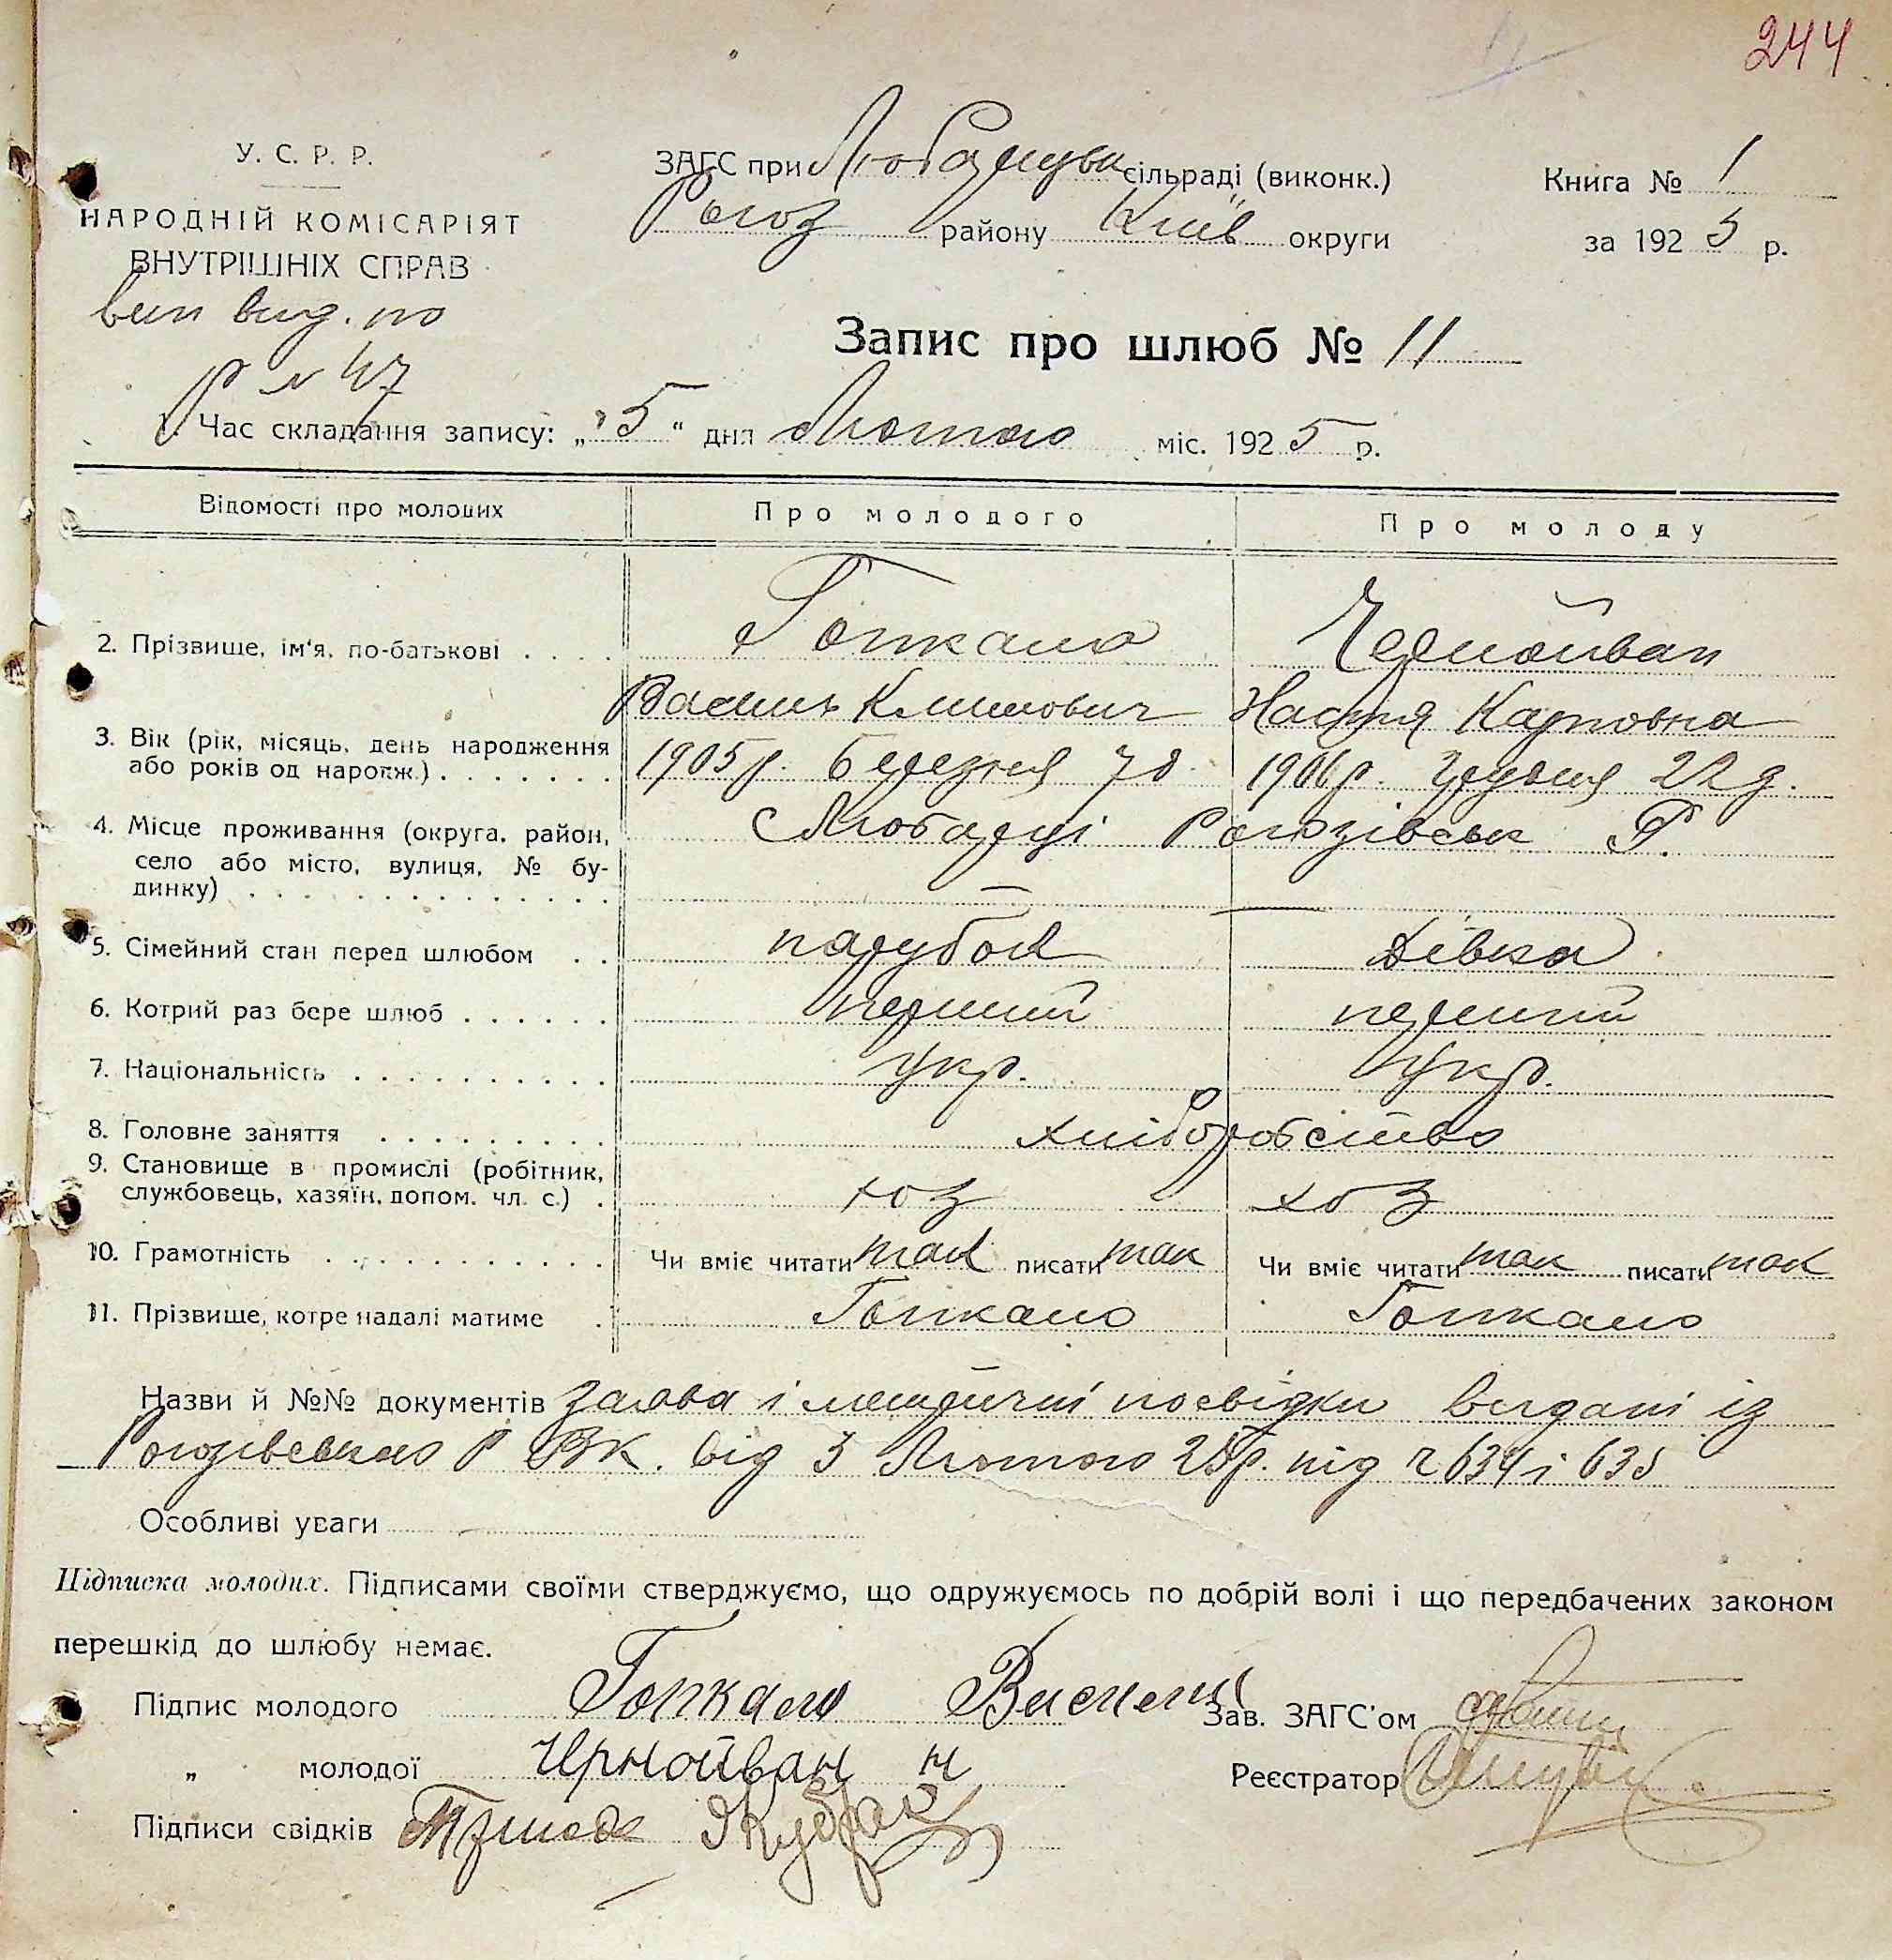 244
У. С. Р. Р.
НАРОДНІЙ КОМІСАРІЯТ
ВНУТРІШНІХ СПРАВ
вип вид. по
Р N 47
ЗАГС при Любарецьк сільраді (виконк.)
Рогоз району Київ округи
Книга № 1
за 1925 р.
Запис про шлюб № 11
1. Час складання запису: „5“ дня Лютого міс. 1925 р.
Відомості про молодих Про молодого Про молоду
2. Прізвище, ім'я, по-батькові . . . . Гопкало Чернойван
Василь Климович Настя Карповна
3. Вік (рік, місяць, день народження
або років од народж.) . . . . . . . 1905 р. березня 7 д. 1906 р. Грудня 22 д.
4. Місце проживання (округа, район, с Любарці Рогозівськ Р.
село або місто, вулиця, № бу-
динку) . . . . . . . . . . . . . . — —
5. Сімейний стан перед шлюбом . . парубок дівка
6. Котрий раз бере шлюб . . . . . . перший перший
7. Національність . . . . . . . . . . укр. укр.
8. Головне заняття . . . . . . . . . хліборобство
9. Становище в промислі (робітник,
службовець, хазяїн, допом. чл. с.) . хоз хоз
10. Грамотність . . . . . . . . . . . Чи вміє читати так писати так Чи вміє читати так писати так
11. Прізвище, котре надалі матиме . Гопкало Гопкало
Назви й №№ документів заява і медичні посвідки видані із
Рогозівського Р ВК. від 3 Лютого 25 р. під ч 634 і 635
Особливі уваги
Підписка молодих. Підписами своїми стверджуємо, що одружуємось по добрій волі і що передбачених законом
перешкід до шлюбу немає.
Підпис молодого Гопкало Василь
Зав. ЗАГС'ом
„ молодої Чрнойван Н
Реєстратор
Підписи свідків Якубрак